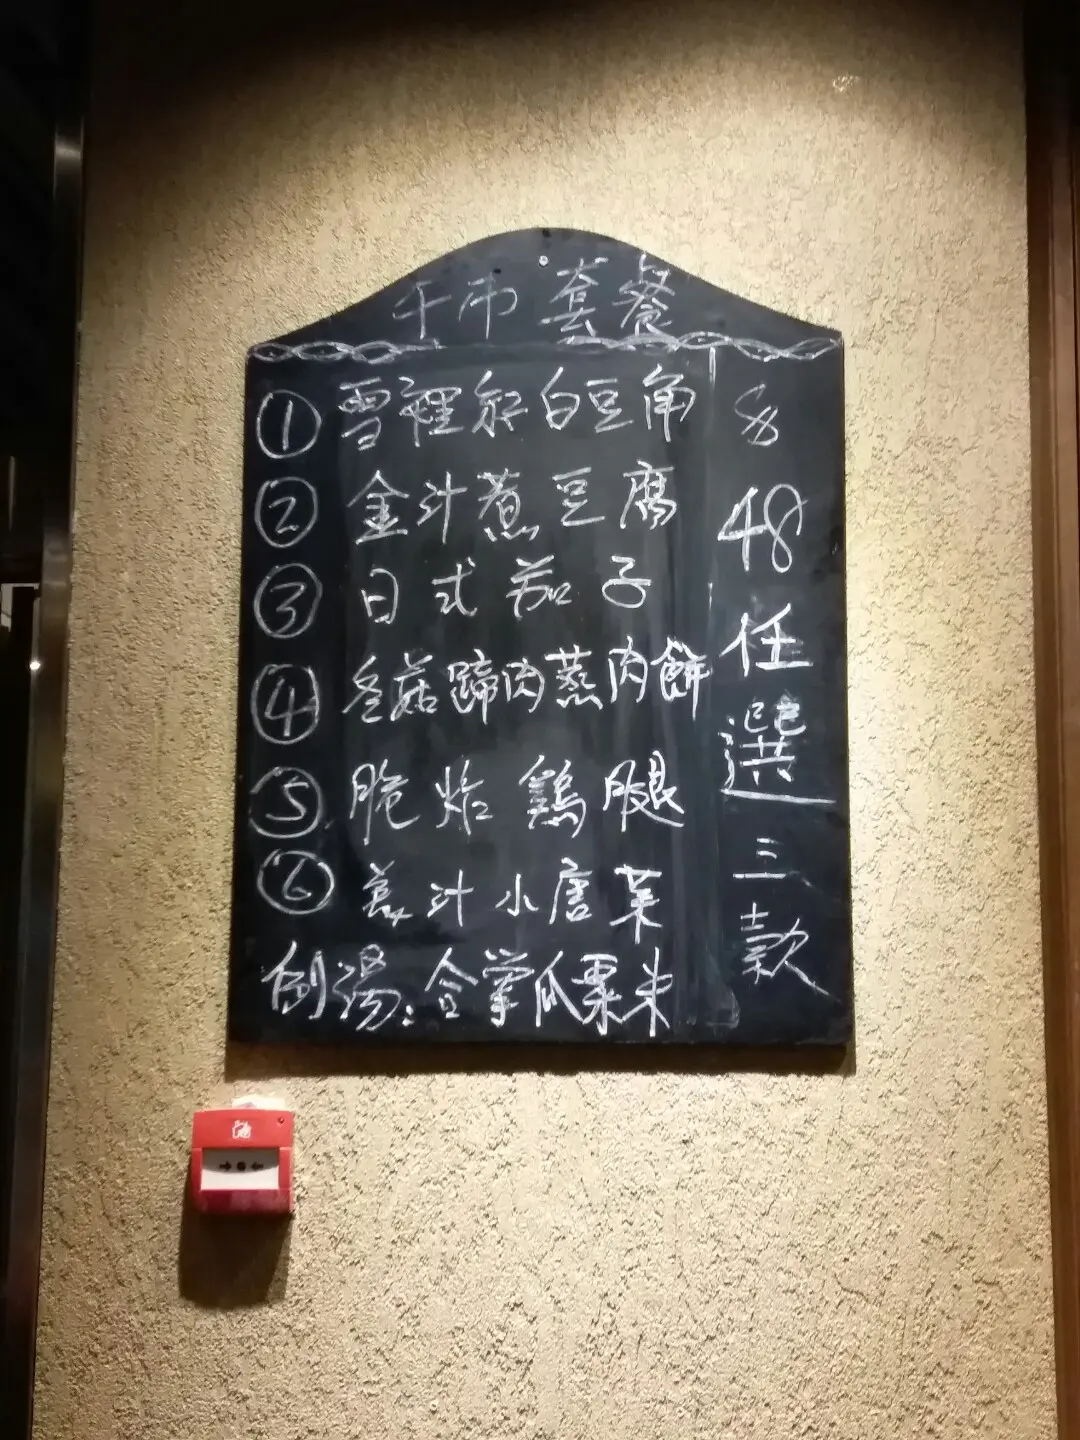 午市 套餐
① 雪裡紅白豆角
② 金汁煮豆腐
③ 日式茄子
④ 冬菇蹄肉蒸肉餅
⑤ 脆炸鷄腿
⑥ 羌汁小唐菜
例湯：合掌瓜粟米
$48任選三款